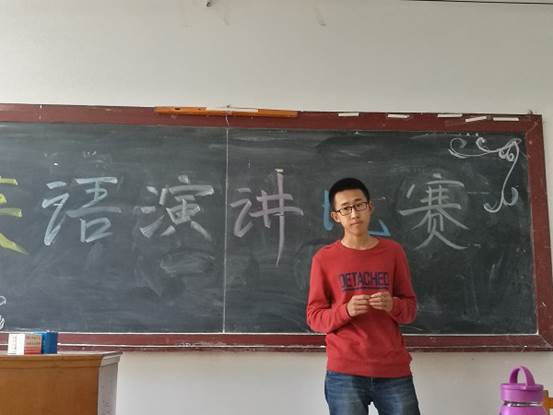 英语演讲比赛
DETACHED